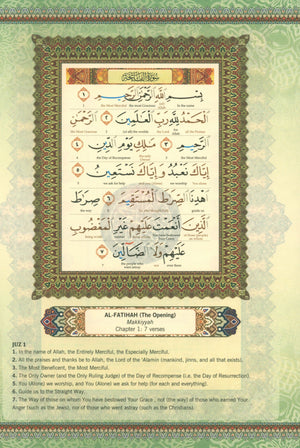 سورة الفاتحة
بِسْمِ اللَّهِ الرَّحْمَٰنِ الرَّحِيمِ ١
the Most Merciful. the most Gracious of Allah In the name
الْحَمْدُ لِلَّهِ رَبِّ الْعَالَمِينَ ٢ الرَّحْمَٰنِ
the Most Gracious (of) all the worlds the Lord All the Praises
الرَّحِيمِ ٣ مَالِكِ يَوْمِ الدِّينِ ٤
the Day of Recompense the Most Merciful.
إِيَّاكَ نَعْبُدُ وَإِيَّاكَ نَسْتَعِينُ ٥
we ask for help we worship You alone
اهْدِنَا الصِّرَاطَ الْمُسْتَقِيمَ ٦ صِرَاطَ
الَّذِينَ أَنْعَمْتَ عَلَيْهِمْ غَيْرِ الْمَغْضُوبِ
عَلَيْهِمْ وَلَا الضَّالِّينَ ٧
AL-FATIHAH (The Opening)
Makkiyyah
Chapter 1: 7 verses
JUZ 1
1. In the name of Allah, the Entirely Merciful, the Especially Merciful.
2. All the praises and thanks be to Allah, the Lord of the 'Alamin (mankind, jinns, and all that exists).
3. The Most Beneficent, the Most Merciful.
4. The Only Owner (and the Only Ruling Judge) of the Day of Recompense (i.e. the Day of Resurrection).
5. You (Alone) we worship, and You (Alone) we ask for help (for each and everything).
6. Guide us to the Straight Way.
7. The Way of those on whom You have bestowed Your Grace , not (the way) of those who earned Your
Anger (such as the Jews), nor of those who went astray (such as the Christians).